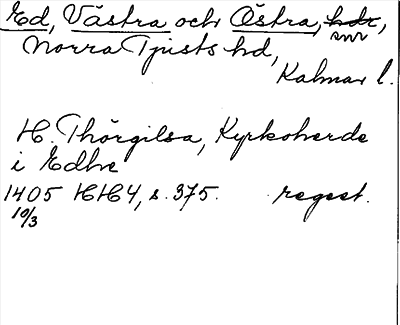 Ed, Västra och Östra, hdr,
snr
Norra Tjusts hd,
Kalmar l.
H. Thorgilsa, Kyrkoherde
i Edhe
1405 HH 4, s. 375. regest.
10/3